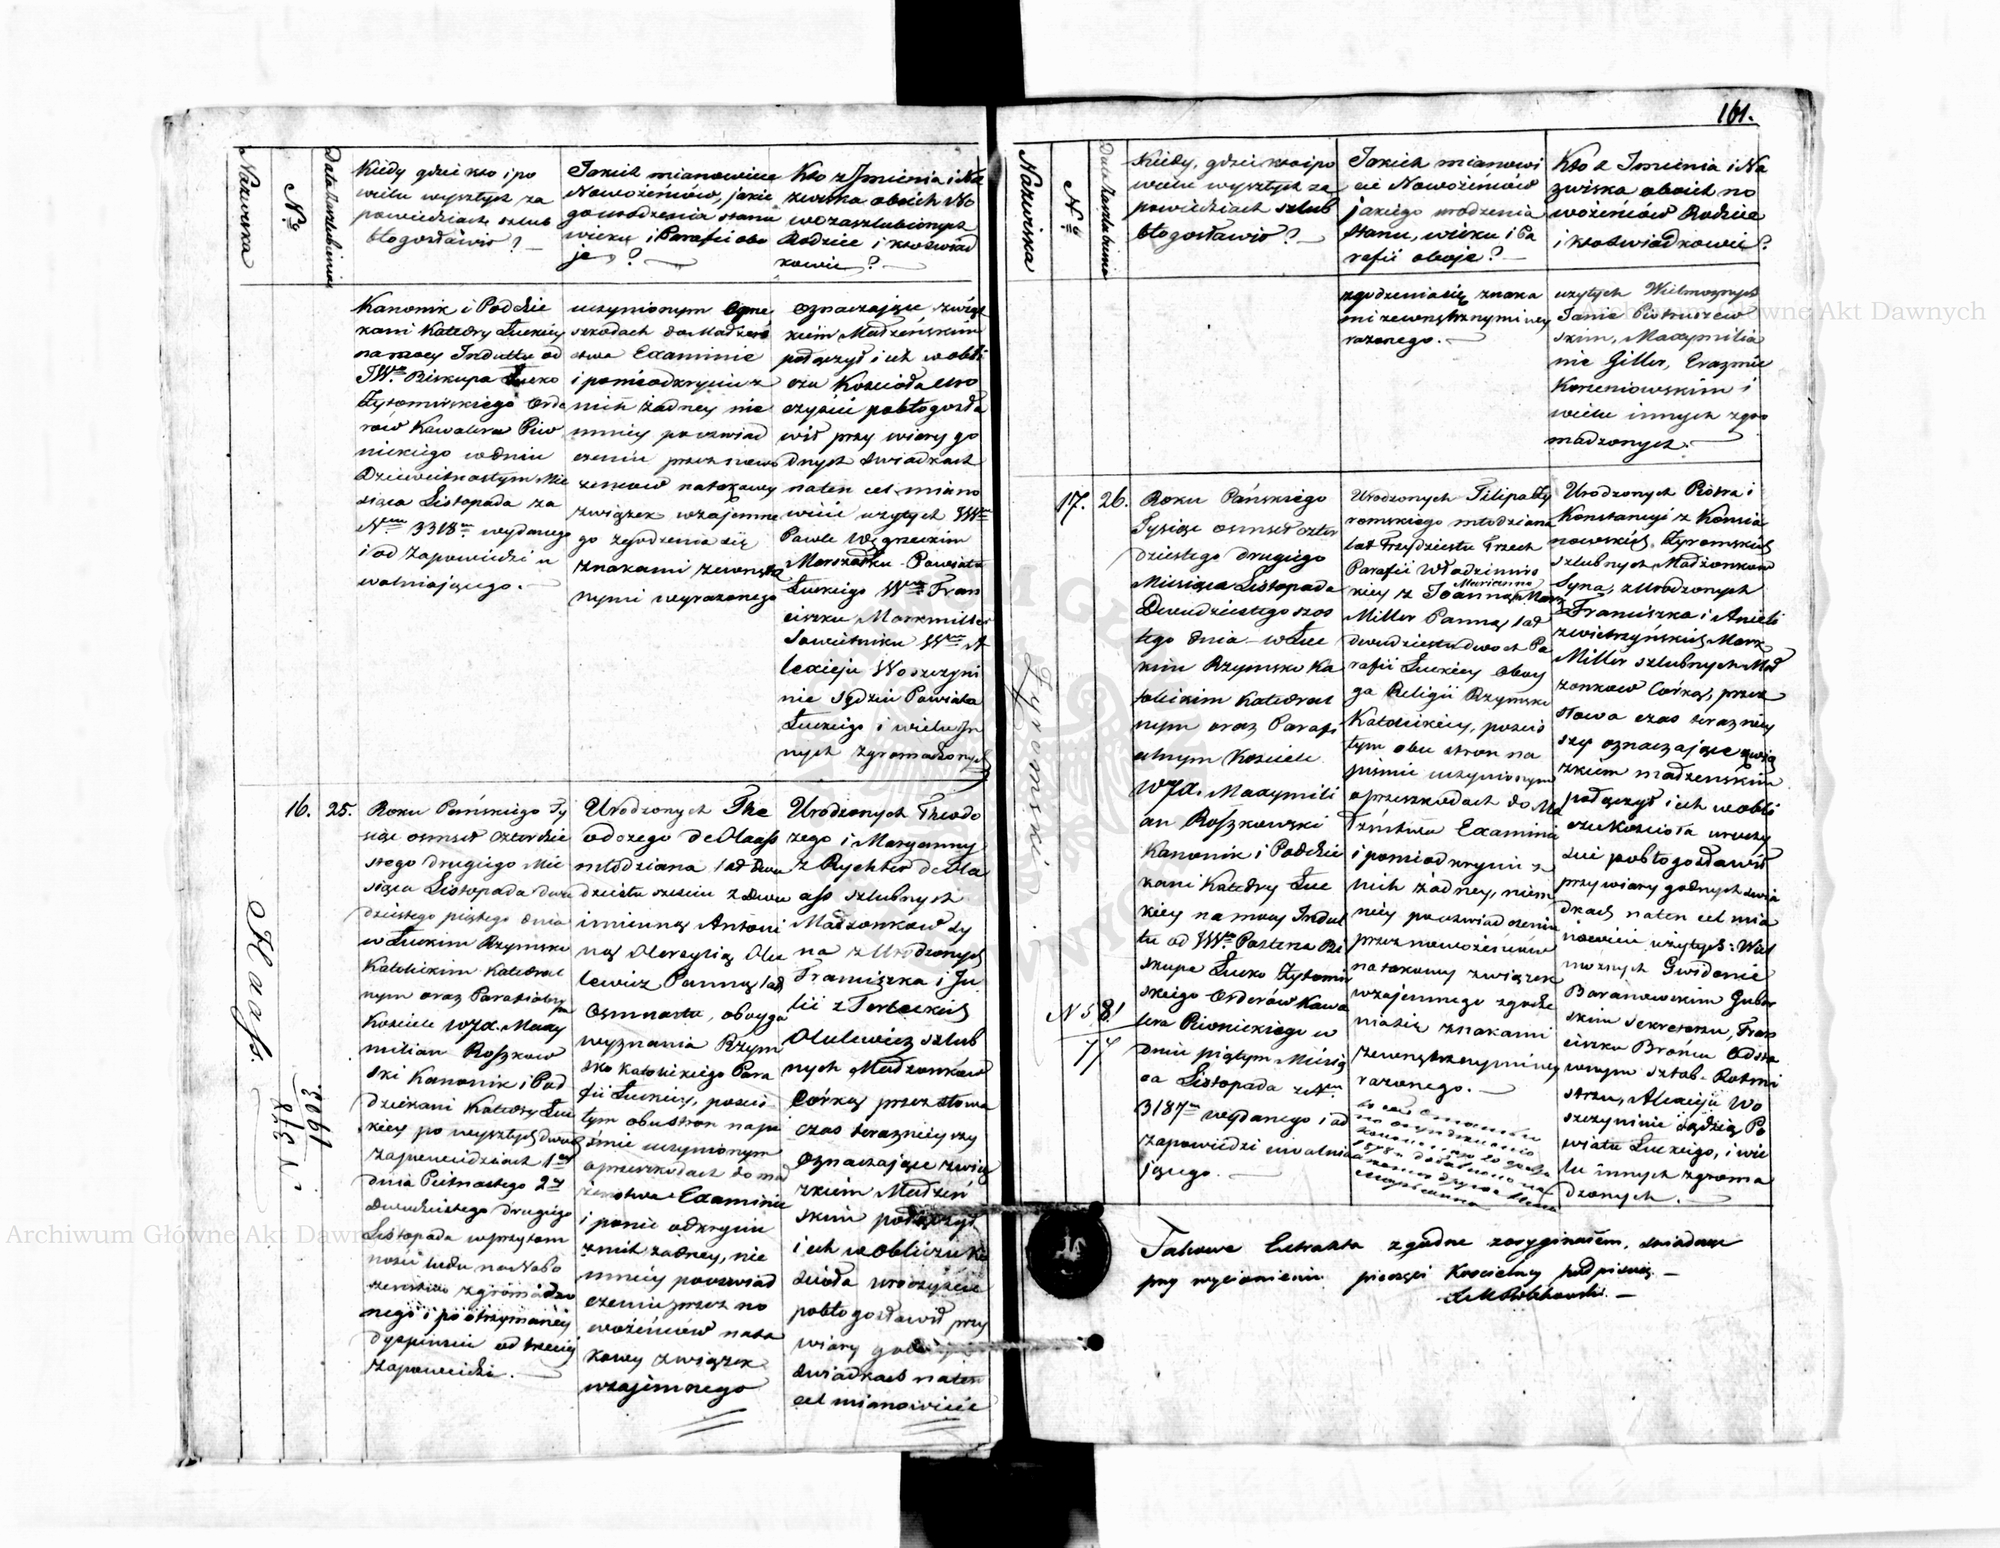 Nazwiska
N<sup>o</sup>
Data Zaszlubienia
Kiedy gdzie kto i po
wielu wyszłych za
powiedziach szlub
błogosławił?
Jakich mianowicie
Nowożeńców, jakie
go urodzenia stanu
wieku i Parafii obo
je?
Kto z Imienia i Na
zwiska oboich No
wozaszlubionych
Rodzice i kto świad
kowie?
Kanonik i Podzie
kani Katedry Łuckiey
na mocy Indultu od
JW. Biskupa Łucko
Żytomirskiego Orde
rów Kawalera Piw
nickiego w dniu
Dziewiętnastym Mie
siąca Listopada za
N 3318 wydanego
i od Zapowiedzi u
walniaiącego.
uczynionym o prze
szkodach do Małżeń
stwa Examinie
i ponieodkryciu z
nich żadney nie
mniey poozwiad
czeniu przez nowo
żeńców na takowy
związek wzajemne
go zgodzenia się
znakami zewnętrz
nymi wyrażonego
oznaczaiące związ
kiem Małżeńskim
połączył i ich w obli
czu Kościoła uro
czyście pobłogosła
wił przy wiary go
dnych świadkach
na ten cel miano
wicie użytych WW
Pawle Węgrzeckim
Marszałku Powiatu
Łuckiego W Fran
ciszku
Sowietniku W A
lexieju Woszczyni
nie Sędzie Powiatu
Łuckiego i wielu in
nych zgromadzonych
16. 25.
Haass.
N 378
1903
Roku Pańskiego Ty
siąc osmset czterdzie
stego drugiego Mie
siąca Listopada dwu
dziestego piątego dnia
w Łuckim Rzymsko
Katolickim Katedral
nym oraz Parafialnym
Kościele WJX. Maxy
milian Roszkow
ski Kanonik i Pod
dziekani Katedry Łuc
kiey po wyszłych dwóch
zapowiedziach 1ey
dnia Pietnastego 2ey
Dwudziestego drugiego
Listopada w przytom
ności ludu na Nabo
żeństwo zgromadzo
nego i po otrzymaney
dyspensie od trzeciey
zapowiedzi.
Urodzonych The
odozego de Haass
młodziana lat dwu
dziestu sześciu z dwu
imienną Antoni
ną
lewicz Panną lat
Osmnastu, oboyga
wyznania Rzym
sko katolickiego Para
fii Łuckiey, poście
łym obustron na pi
śmie uczynionym
o przeszkodach do mał
żeństwa Examinie
i ponie odkryciu
z nich żadney, nie
mniey poozwiad
czeniu przez no
wożeńców na ta
kowy związek
wzajemnego
Urodzonych Theodo
zego i Maryanny
z Rychter de Ha
ass szlubnych
Małżonków Sy
na z Urodzonych
Franciszka i Ju
lii z Terleckich
szlub
nych Małżonków
Córką przez słowa
czas teraźnieyszy
oznaczaiące związ
kiem Małżeń
skim połączył
i ich w obliczu Ko
ścioła uroczyście
pobłogosławił przy
wiary godnych
świadkach na ten
cel mianowicie
161.
Nazwiska
N<sup>o</sup>
Data Zaszlubienia
Kiedy, gdzie kto i po
wielu wyszłych za
powiedziach szlub
błogosławił?
Jakich mianowi
cie Nowożeńców
jakiego urodzenia
stanu, wieku i Pa
rafii oboje?
Kto z Imienia i Na
zwiska oboich no
wożeńców Rodzice
i kto świadkowie?
zgodzenia się znaka
mi zewnętrznymi wy
rażonego.
użytych Wielmożnych
Janie Piotruszew
skim, Maxymilia
nie Giller, Erazmie
Korzeniowskim i
wielu innych zgro
madzonych.
17. 26.
Żyromski.
N 581
77
Roku Pańskiego
Tysiąc osmset czter
dziestego drugiego
Miesiąca Listopada
Dwudziestego szós
tego dnia w Łuc
kim Rzymsko Ka
tolickim Katedral
nym oraz Parafi
alnym Kościele
WJX. Maxymili
an Roszkowski
Kanonik i Podzie
kani Katedry Łuc
kiey na mocy Indul
tu od JW. Pasterza Bi
skupa Łucko Żytomir
skiego Orderów Kawa
lera Piwnickiego w
dniu piątym Miesią
ca Listopada z N
3187 wydanego i od
zapowiedzi uwalnia
iącego.
Urodzonych Filipa Ży
romskiego młodziana
lat Trzydziestu Trzech
Parafii Włodzimirs
kiey z Joanną Marianną
Miller Panną lat
dwudziestu dwóch Pa
rafii Łuckiey oboy
ga Religii Rzymsko
Katolickiey, poście
łym obu stron na
piśmie uczynionym
o przeszkodach do Ma
łżeństwa Examinie
i ponieodkryciu z
nich żadney, niem
niey poozwiadczeniu
przez nowożeńców
na takowy związek
wzajemnego zgodze
nia się znakami
zewnętrznymi wy
rażonego.
Urodzonych Piotra i
Konstancyi z Konia
nowskich Żyromskich
szlubnych Małżonków
Syna, z Urodzonych
Franciszka i Anieli
Zwietrzyńskich
Miller szlubnych Mał
żonków Córką, przez
słowa czas teraźniey
szy oznaczaiące zwią
zkiem małżeńskim
połączył i ich w obli
czu Kościoła uroczy
ście pobłogosławił
przy wiary godnych świa
dkach na ten cel mia
nowicie użytych: Wiel
możnych Gwidonie
Baranowskim Guber
skim Sekretarzu, Fran
ciszku Brońcu Odsta
wnym sztab-Rotmi
strzu, Alexieju Wo
szczyninie Sędzią Po
wiatu Łuckiego, i wie
lu innych zgroma
dzonych.
Takowe Extrakta zgodne z oryginałem, świadczę
przy wyciśnieniu pieczęci Kościelney podpisuię